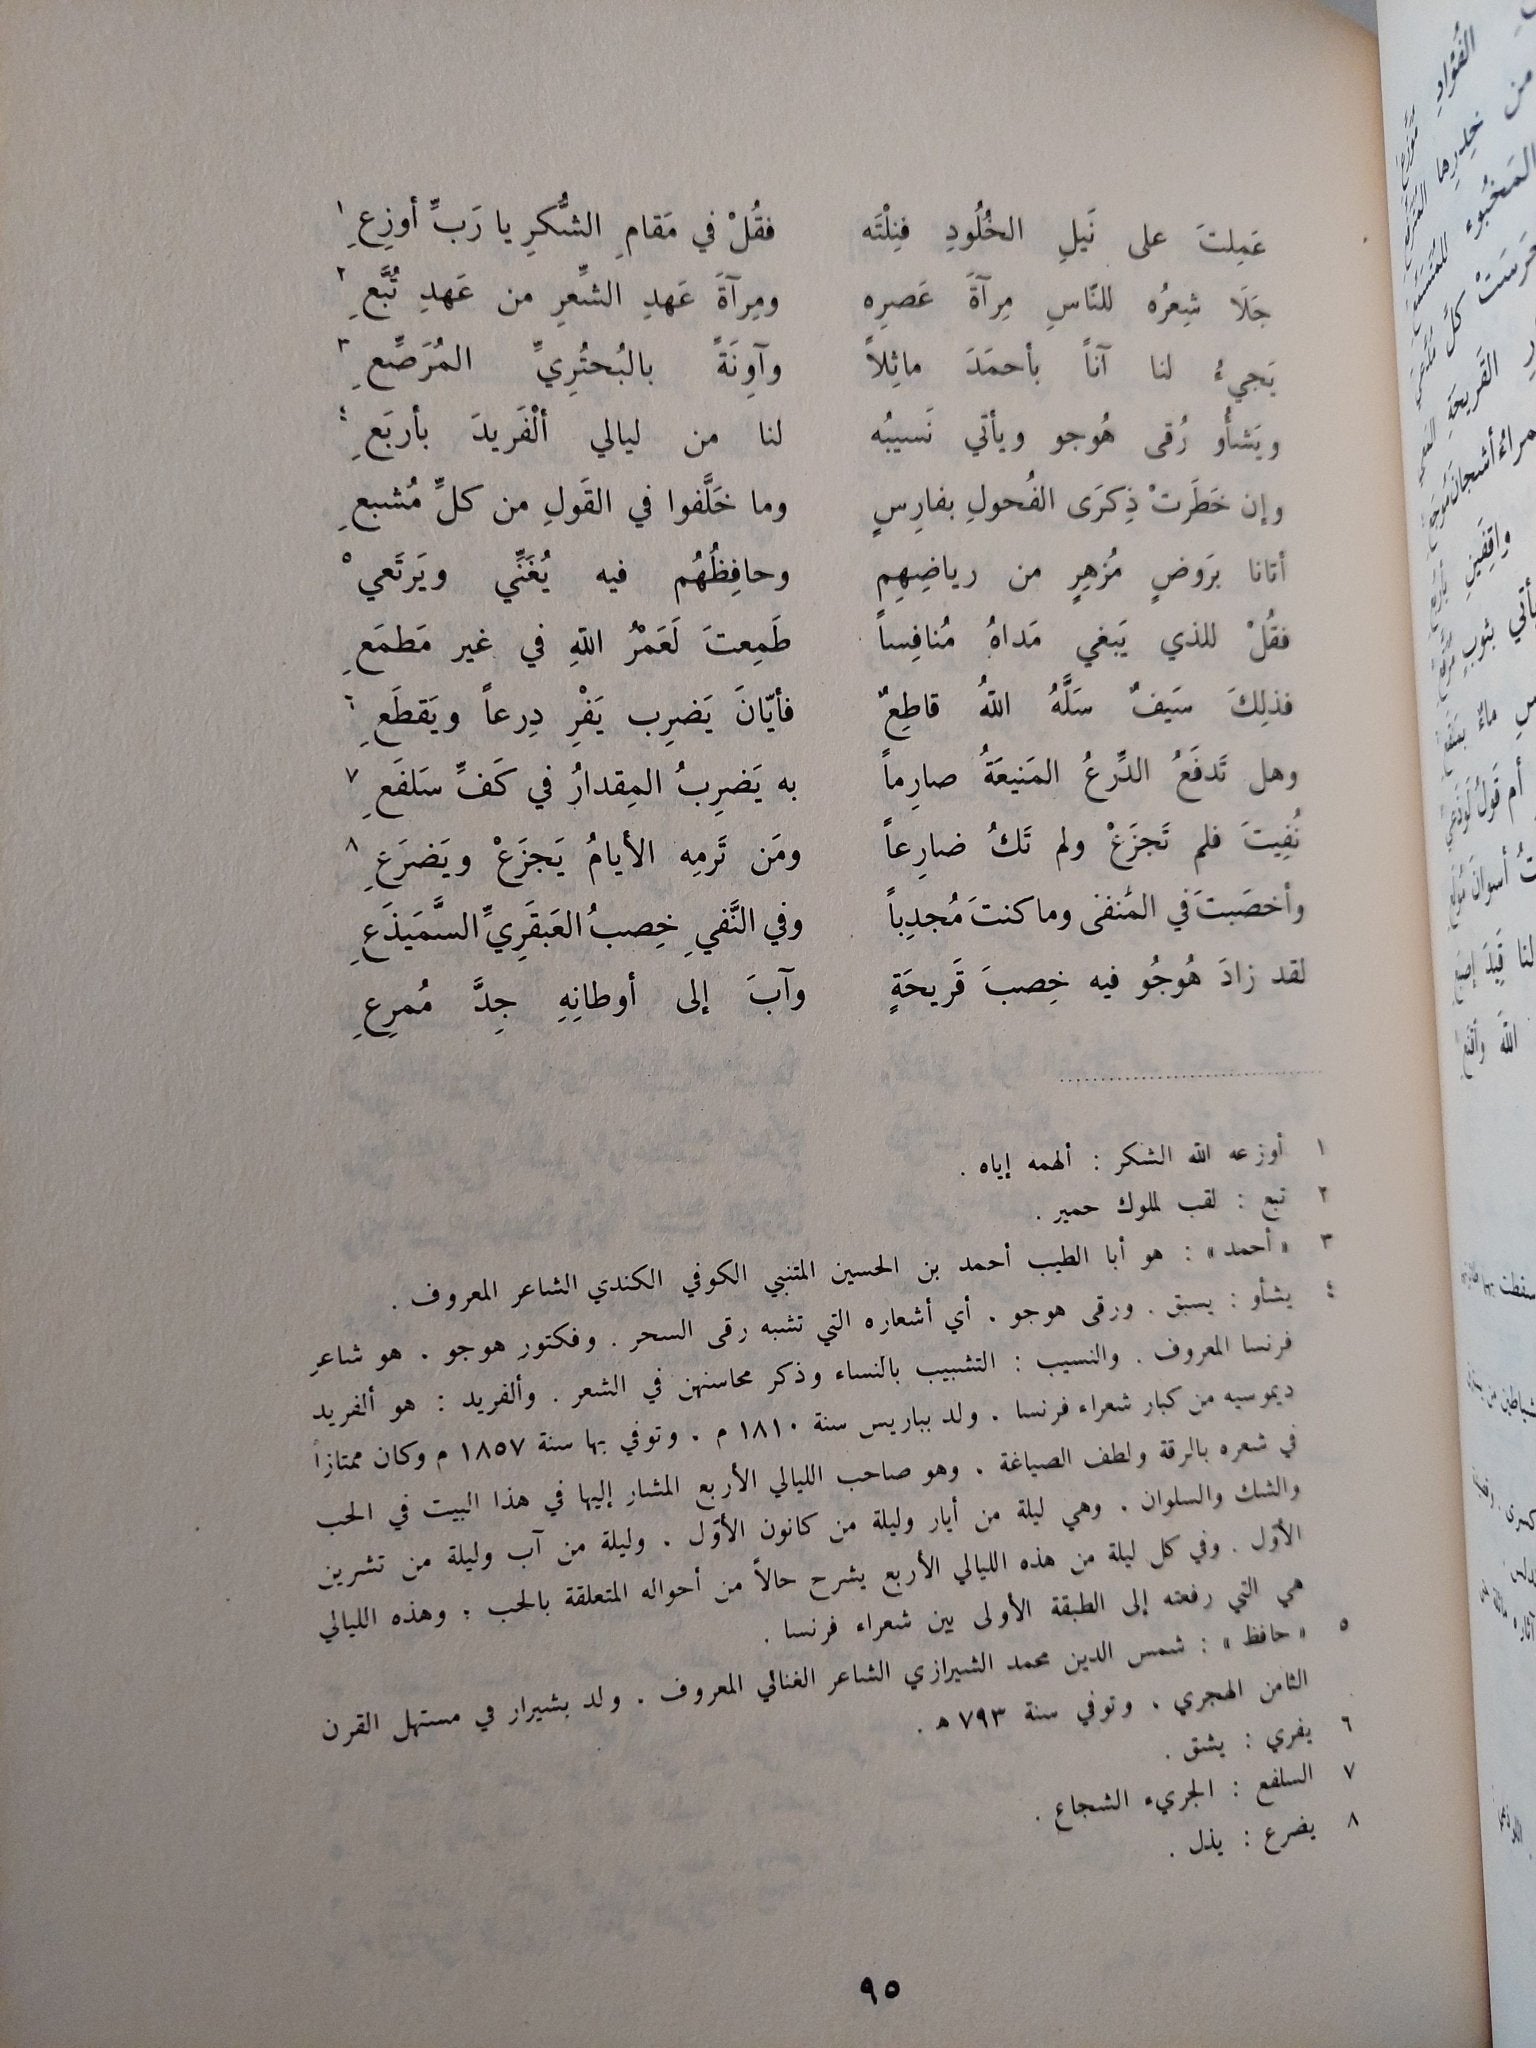 عَمِلتَ على نَيلِ الخُلُودِ فنِلْتَه فقُلْ في مَقامِ الشُّكرِ يا رَبِّ أوزِعِ ١
جَلَا شِعرُه للنّاسِ مِرآةَ عَصرِه ومِرآةَ عَهدِ الشِّعرِ من عَهدِ تُبَّعِ ٢
يَجيءُ لنا آناً بأحمَدَ ماثِلاً وآوِنَةً بالبُحتُرِيِّ المُرَصِّعِ ٣
ويَشأُو رُقى هُوجو ويأتي نَسيبُه لنا من ليالي ألْفَريدَ بأربَعِ ٤
وإن خَطَرَتْ ذِكرَى الفُحولِ بفارِسٍ وما خَلَّفوا في القَولِ من كلِّ مُشبعِ
أتانا بَروضٍ مُزهِرٍ من رياضِهِم وحافِظُهُم فيه يُغَنِّي ويَرتَعي ٥
فقُلْ للذي يَبغي مَداهُ مُنافِساً طَمِعتَ لَعَمْرُ اللّهِ في غير مَطمَعِ
فذلِكَ سَيفٌ سَلَّهُ اللّهُ قاطِعٌ فأيّانَ يَضرِب يَفْرِ دِرعاً ويَقطَعِ ٦
وهل تَدفَعُ الدِّرعُ المَنيعَةُ صارِماً به يَضرِبُ المِقدارُ في كَفِّ سَلفَعِ ٧
نُفِيتَ فلم تَجزَعْ ولم تَكُ ضارِعاً ومَن تَرمِه الأيامُ يَجزَعْ ويَضرَعِ ٨
وأخصَبتَ في المَنفى وما كنتَ مُجدِباً وفي النَّفيِ خِصبُ العَبقَرِيِّ السَّمَيذَعِ
لقد زادَ هُوجُو فيه خِصبَ قَريحَةٍ وآبَ إلى أوطانِهِ جِدَّ مُمرِعِ
١ أوزعه الله الشكر : ألهمه إياه .
٢ تبع : لقب لملوك حمير .
٣ « أحمد » : هو أبا الطيب أحمد بن الحسين المتنبي الكوفي الكندي الشاعر المعروف .
٤ يشأو : يسبق . ورقى هوجو . أي أشعاره التي تشبه رقى السحر . وفكتور هوجو . هو شاعر
فرنسا المعروف . والنسيب : التشبيب بالنساء وذكر محاسنهن في الشعر . وألفريد : هو ألفريد
ديموسيه من كبار شعراء فرنسا . ولد بباريس سنة ١٨١٠ م . وتوفي بها سنة ١٨٥٧ م وكان ممتازاً
في شعره بالرقة ولطف الصياغة . وهو صاحب الليالي الأربع المشار إليها في هذا البيت في الحب
والشك والسلوان . وهي ليلة من أيار وليلة من كانون الأوّل . وليلة من آب وليلة من تشرين
الأوّل . وفي كل ليلة من هذه الليالي الأربع يشرح حالاً من أحواله المتعلقة بالحب : وهذه الليالي
هي التي رفعته إلى الطبقة الأولى بين شعراء فرنسا .
٥ « حافظ » : شمس الدين محمد الشيرازي الشاعر الغنائي المعروف . ولد بشيرار في مستهل القرن
الثامن الهجري . وتوفي سنة ٧٩٣ هـ .
٦ يفري : يشق .
٧ السلفع : الجريء الشجاع .
٨ يضرع : يذل .
٩٥